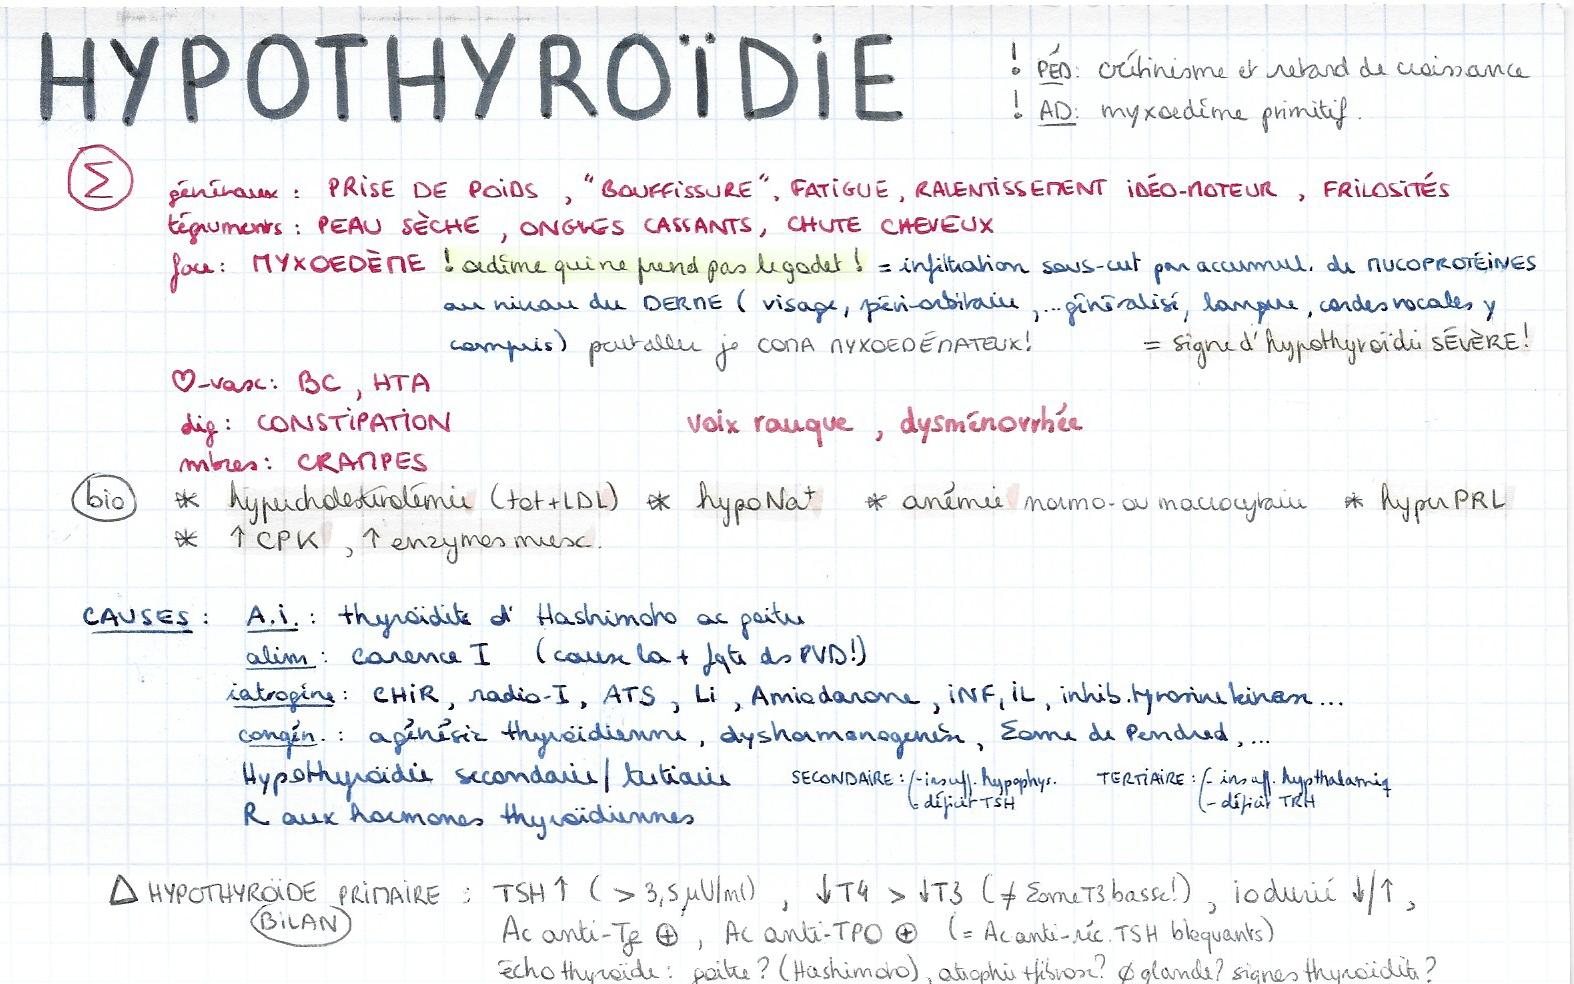 HYPOTHYROÏDIE
! PÉD: crétinisme et retard de croissance
! AD: myxoedème primitif.
Σ
généraux : PRISE DE POIDS , "BOUFFISSURE", FATIGUE, RALENTISSEMENT IDÉO-MOTEUR , FRILOSITÉS
téguments : PEAU SÈCHE , ONGLES CASSANTS, CHUTE CHEVEUX
face: MYXOEDÈME ! œdème qui ne prend pas le godet ! = infiltration sous-cut par accumul. de MUCOPROTÉINES
au niveau du DERME ( visage, péri-orbitaire , ... généralisé, langue, cordes vocales y
compris) peut aller jq COMA MYXOEDÉMATEUX! = signe d'hypothyroïdie SÉVÈRE!
♡-vasc: BC , HTA
dig: CONSTIPATION voix rauque , dysménorrhée
mbres: CRAMPES
bio * hypercholestérolémie (tot+LDL) * hypoNa⁺ * anémie normo- ou macrocytaire * hyperPRL
* ↑ CPK , ↑ enzymes musc.
CAUSES : A.i. : thyroïdite d' Hashimoto ac goitre
alim : carence I (cause la + fqte ds PVD!)
iatrogène : CHIR , radio-I , ATS , Li , Amiodarone , iNF, iL , inhib. tyrosine kinase ...
congén. : agénésie thyroïdienne , dyshormonogenèse , Σome de Pendred , ...
Hypothyroïdie secondaire / tertiaire SECONDAIRE : - insuff. hypophys. TERTIAIRE : - insuff. hypthalamiq
- déficit TSH - déficit TRH
R aux hormones thyroïdiennes
△ HYPOTHYROÏDE PRIMAIRE : TSH ↑ ( > 3,5 µU/ml) , ↓T4 > ↓T3 ( ≠ Σome T3 basse!) , iodurie ↓/↑ ,
BILAN
Ac anti-Tg ⊕ , Ac anti-TPO ⊕ (= Ac anti-réc. TSH bloquants)
Echo thyroïde : goitre ? (Hashimoto), atrophie + fibrose? ∅ glande? signes thyroïdite ?